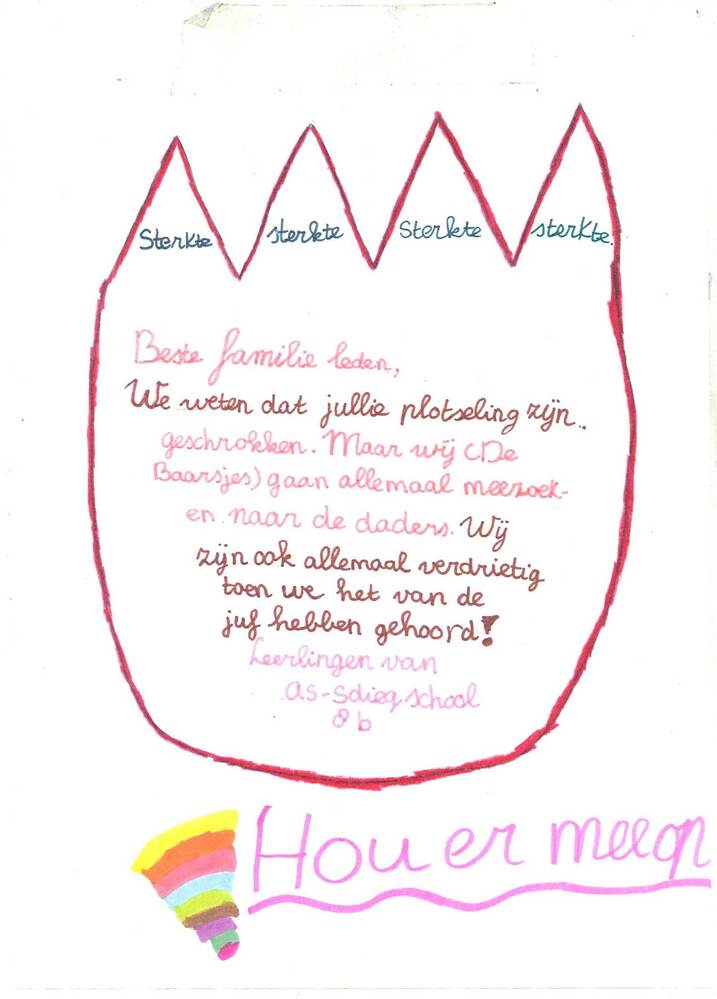 Sterkte sterkte Sterkte sterkte.
Beste familie leden,
We weten dat jullie plotseling zijn..
geschrokken. Maar wij (De
Baarsjes) gaan allemaal meezoek-
en naar de daders. Wij
zijn ook allemaal verdrietig
toen we het van de
juf hebben gehoord!
Leerlingen van
as-Sdieq school
8b
Hou er mee op